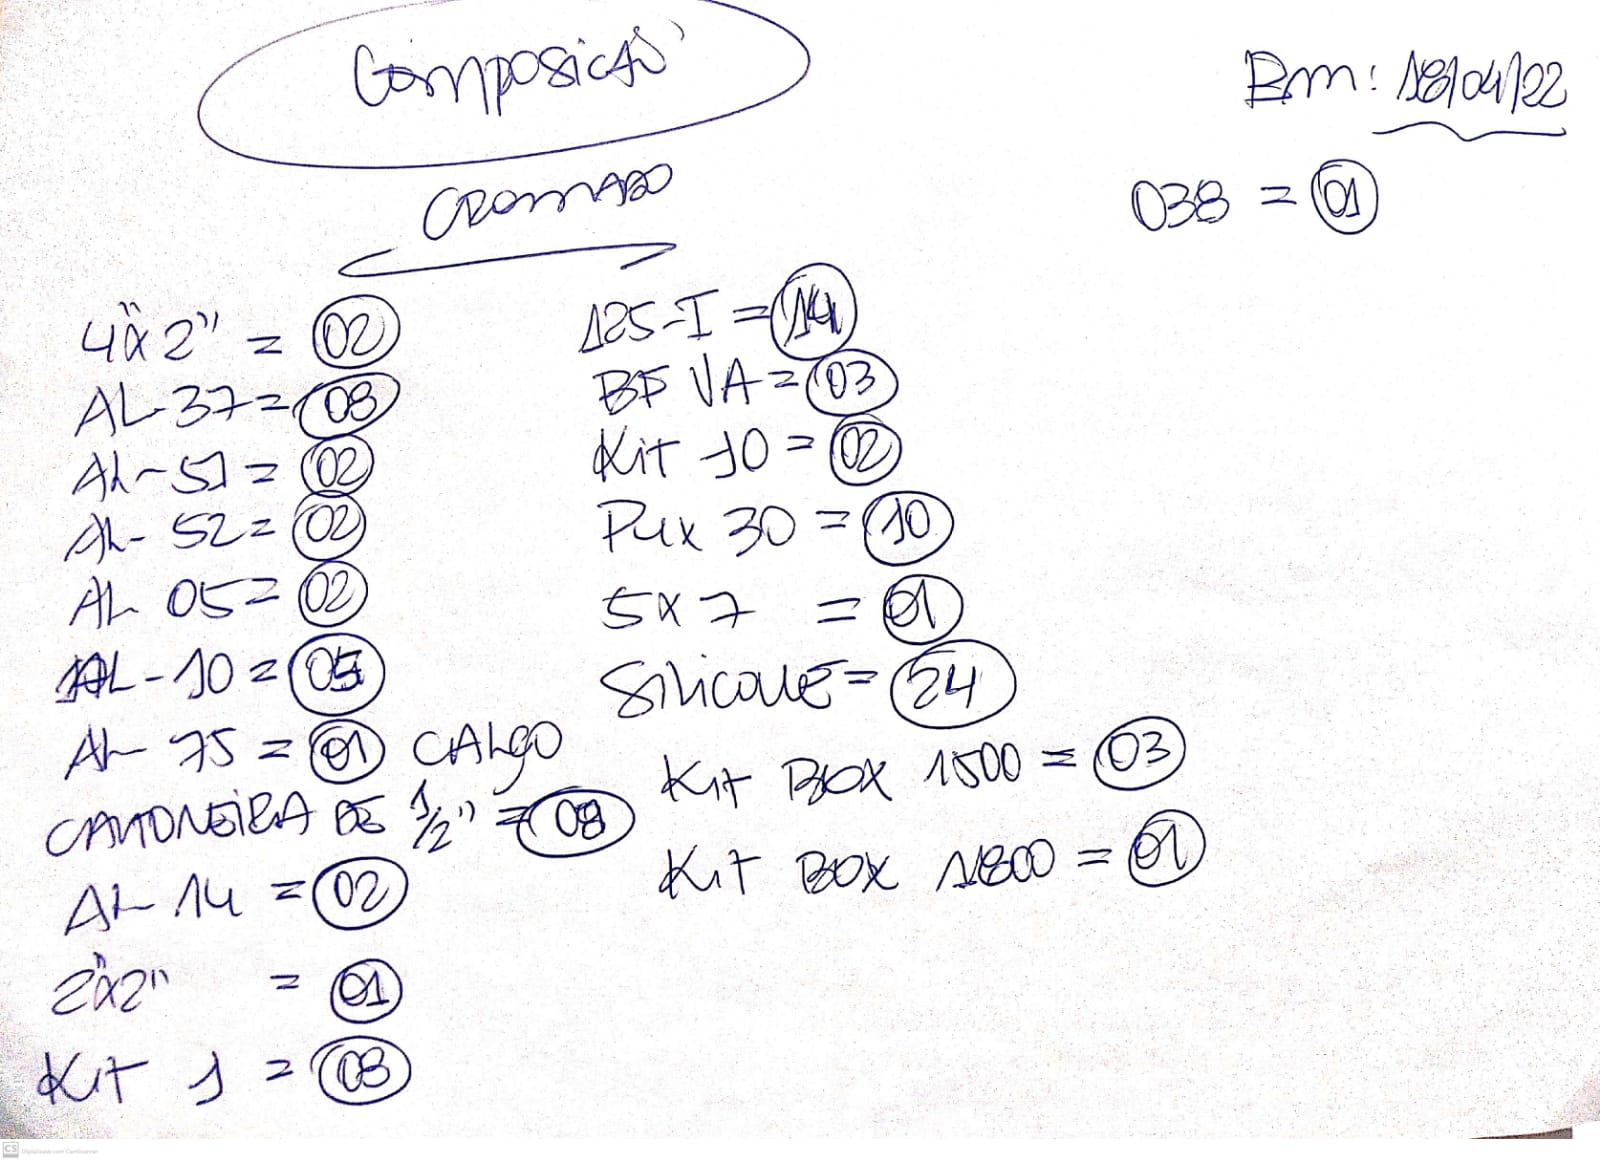 Composição
Bm: 18/04/22
CROMADO
038 = 01
4"x2" = 02
AL-37 = 08
AL-51 = 02
AL-52 = 02
AL 05 = 02
AL-10 = 05
AL-75 = 01 CALÇO
CANTONEIRA DE 1/2" = 08
AL 14 = 02
2"x2" = 01
Kit 1 = 03
125-I = 14
BF VA = 03
Kit 10 = 02
Pux 30 = 10
5x7 = 01
Silicone = 24
Kit BOX 1500 = 03
Kit BOX 1800 = 01
CS Digitalizado com CamScanner